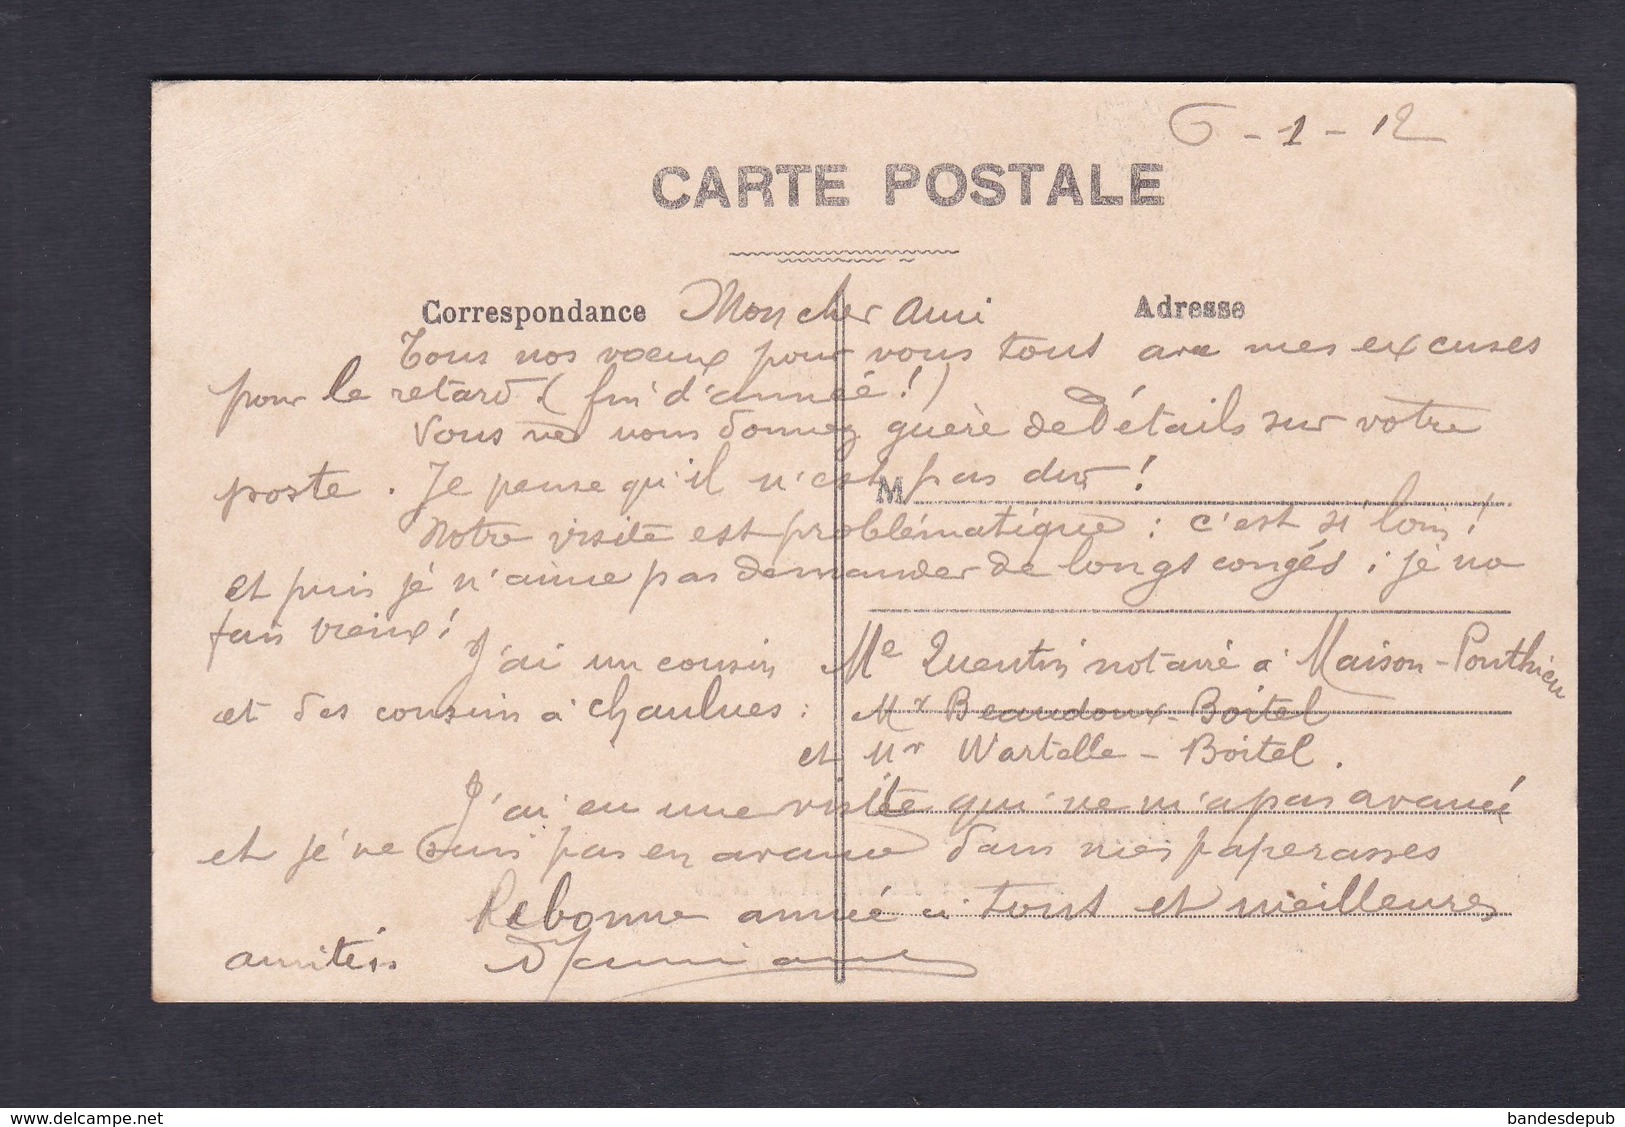 6 - 1 - 12
CARTE POSTALE
Correspondance Mon cher Ami Adresse
Tous nos vœux pour vous tous avec mes excuses
pour le retard (fin d'année!)
Vous ne nous donnez guère de Détails sur votre
poste. Je pense qu'il n'est pas dur!
M
Notre visite est problématique : c'est si loin!
et puis je n'aime pas demander de longs congés ; je me
fais vieux!
J'ai un cousin Me Quentin notaire à Maison-Ponthieu
et des cousins à Chaulnes : Mr Beaudoux-Boitel
et Mr Wartelle - Boitel.
J'ai eu une visite qui ne m'a pas avancé
et je ne suis pas en avance dans mes paperasses
Rebonne année à tous et meilleures
amitiés
delcampe.net
bandesdepub